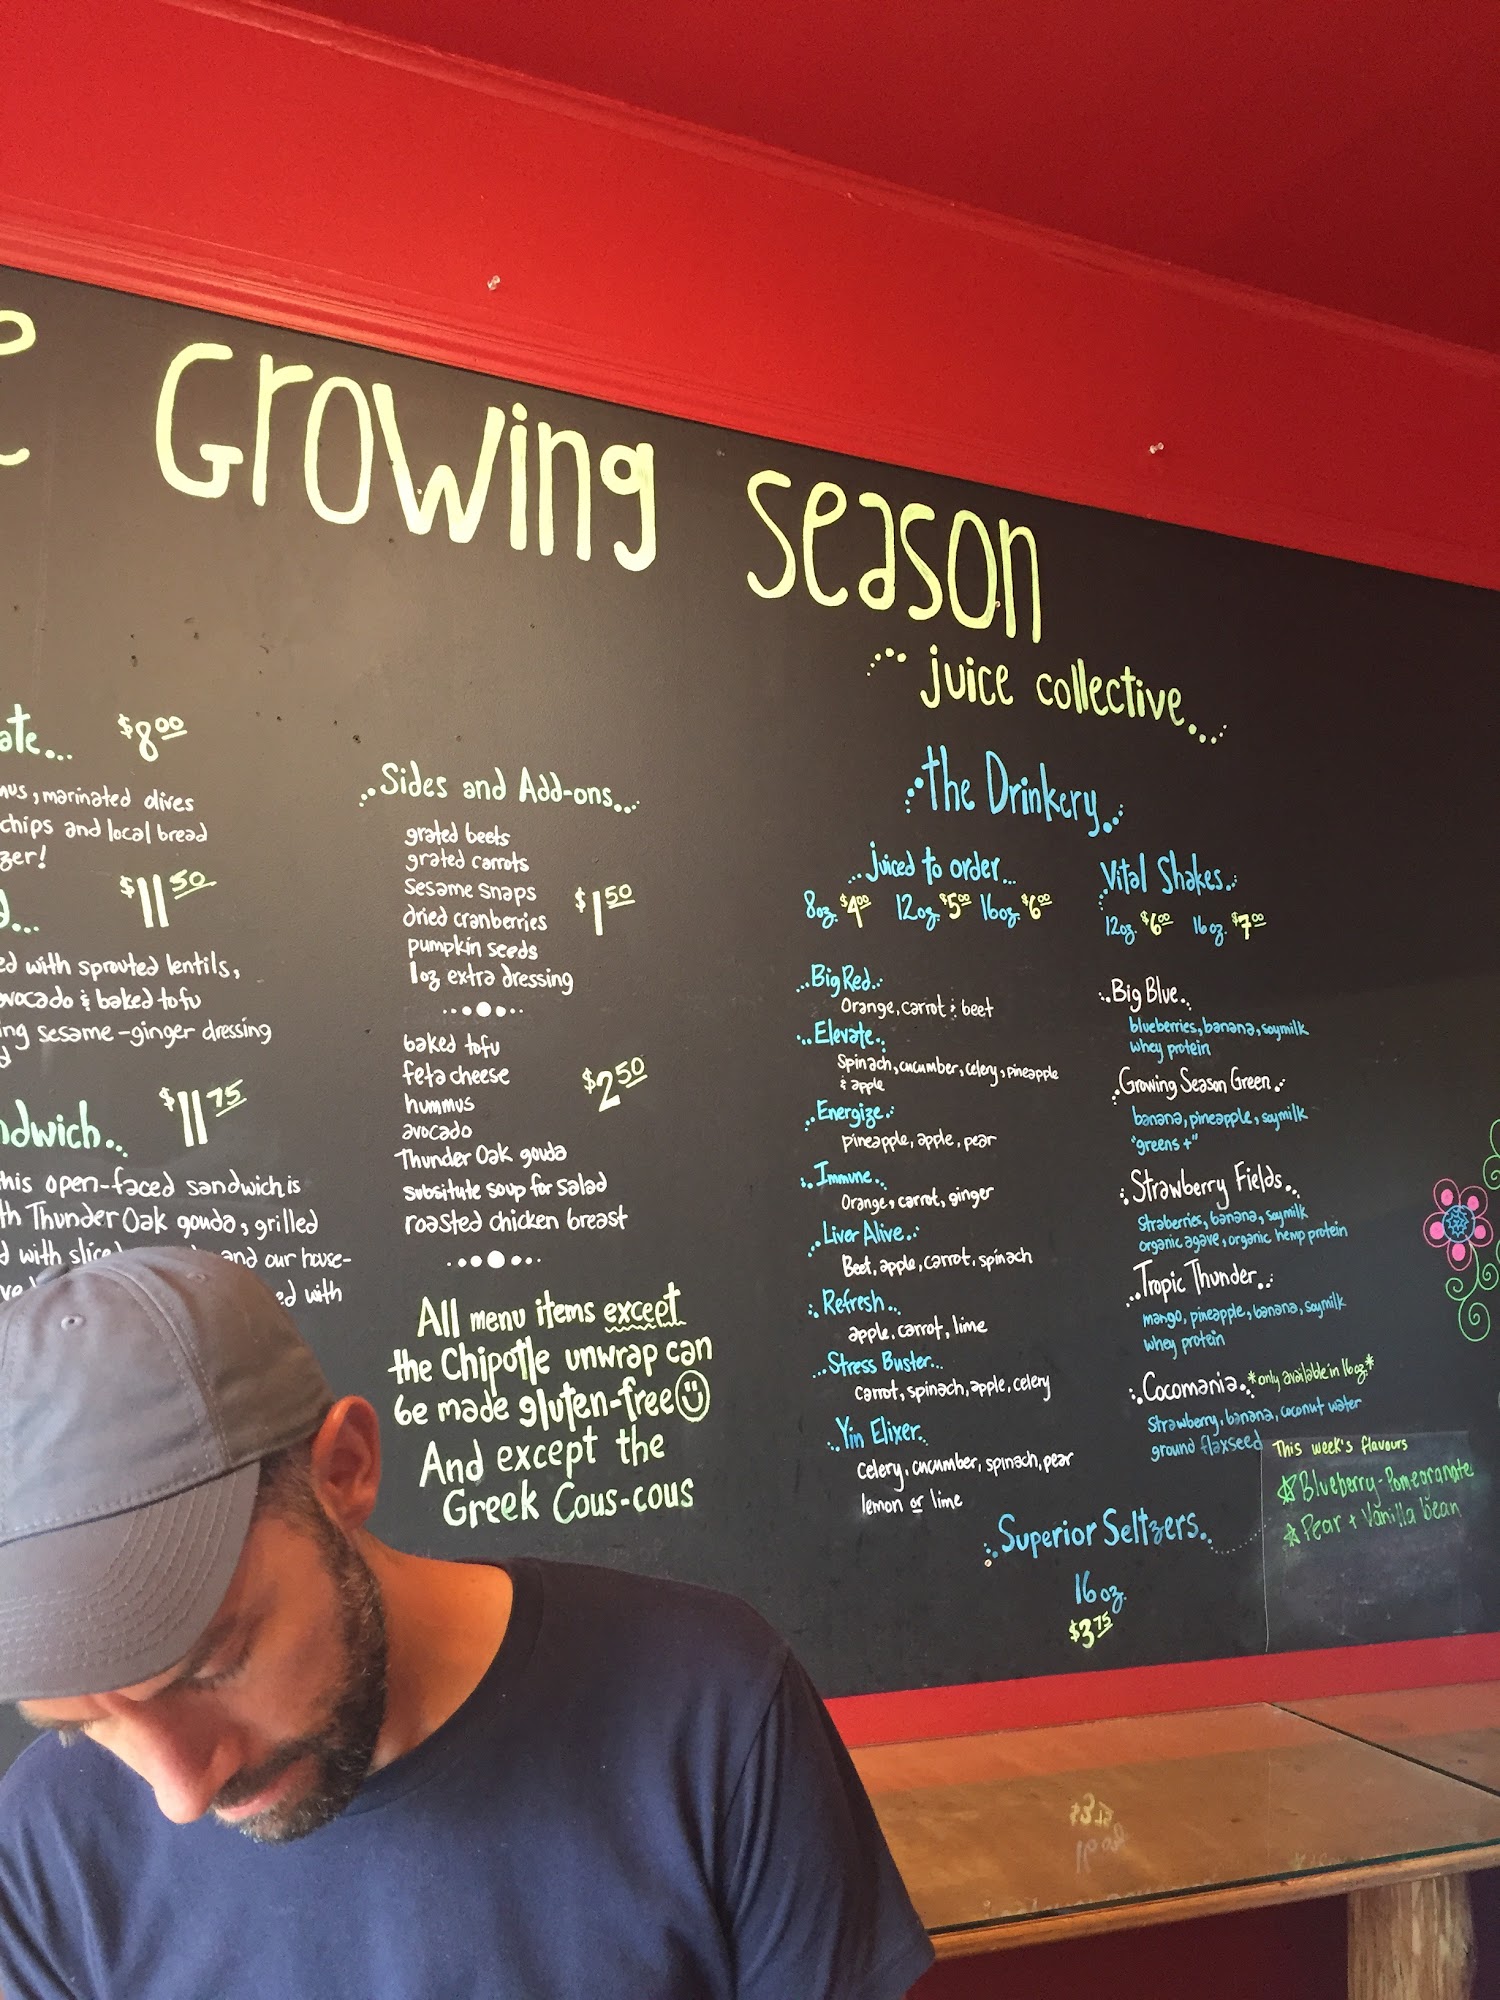 Growing season
juice collective
$8.00
marinated olives
chips and local bread
$11.50
with sprouted lentils,
avocado & baked tofu
sesame-ginger dressing
$11.75
this open-faced sandwich is
Thunder Oak gouda, grilled
with and our house-
with
Sides and Add-ons...
grated beets
grated carrots
sesame snaps
dried cranberries
pumpkin seeds
1oz extra dressing
$1.50
baked tofu
feta cheese
hummus
avocado
Thunder Oak gouda
substitute soup for salad
roasted chicken breast
$2.50
All menu items except
the Chipotle unwrap can
be made gluten-free
And except the
Greek Cous-cous
the Drinkery
juiced to order...
8oz. $4.00 12oz. $5.00 16oz. $6.00
Big Red
Orange, carrot & beet
Elevate
Spinach, cucumber, celery, pineapple
& apple
Energize
pineapple, apple, pear
Immune
Orange, carrot, ginger
Liver Alive
Beet, apple, carrot, spinach
Refresh
apple, carrot, lime
Stress Buster...
carrot, spinach, apple, celery
Yin Elixer
celery, cucumber, spinach, pear
lemon or lime
Vital Shakes
12oz. $6.00 16oz. $7.00
Big Blue
blueberries, banana, soymilk
whey protein
Growing Season Green
banana, pineapple, soymilk
"greens +"
Strawberry Fields
straberries, banana, soymilk
organic agave, organic hemp protein
Tropic Thunder
mango, pineapple, banana, soymilk
whey protein
Cocomania *only available in 16oz.*
Strawberry, banana, coconut water
ground flaxseed
Superior Seltzers
16 oz.
$3.75
This week's flavours
Blueberry-Pomegranate
Pear + Vanilla bean